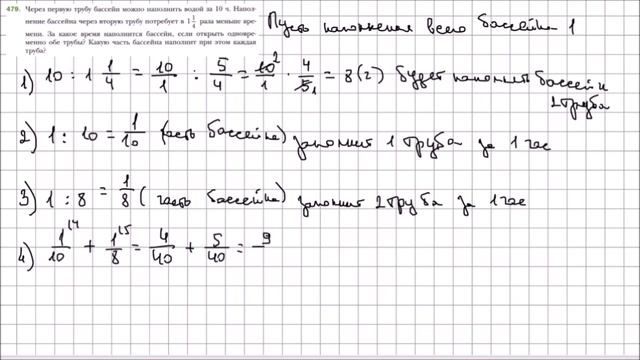 479. Через первую трубу бассейн можно наполнить водой за 10 ч. Напол-
нение бассейна через вторую трубу потребует в 1 1/4 раза меньше вре-
мени. За какое время наполнится бассейн, если открыть одновре-
менно обе трубы? Какую часть бассейна наполнит при этом каждая
труба?
Пусть наполнения всего бассейна 1
1) 10 : 1 1/4 = 10/1 : 5/4 = 10²/1 · 4/5₁ = 8 (ч) будет наполнять бассейн
2 труба
2) 1 : 10 = 1/10 (часть бассейна) заполнит 1 труба за 1 час
3) 1 : 8 = 1/8 (часть бассейна) заполнит 2 труба за 1 час
4) 1/10 \4 + 1/8 \5 = 4/40 + 5/40 = 9